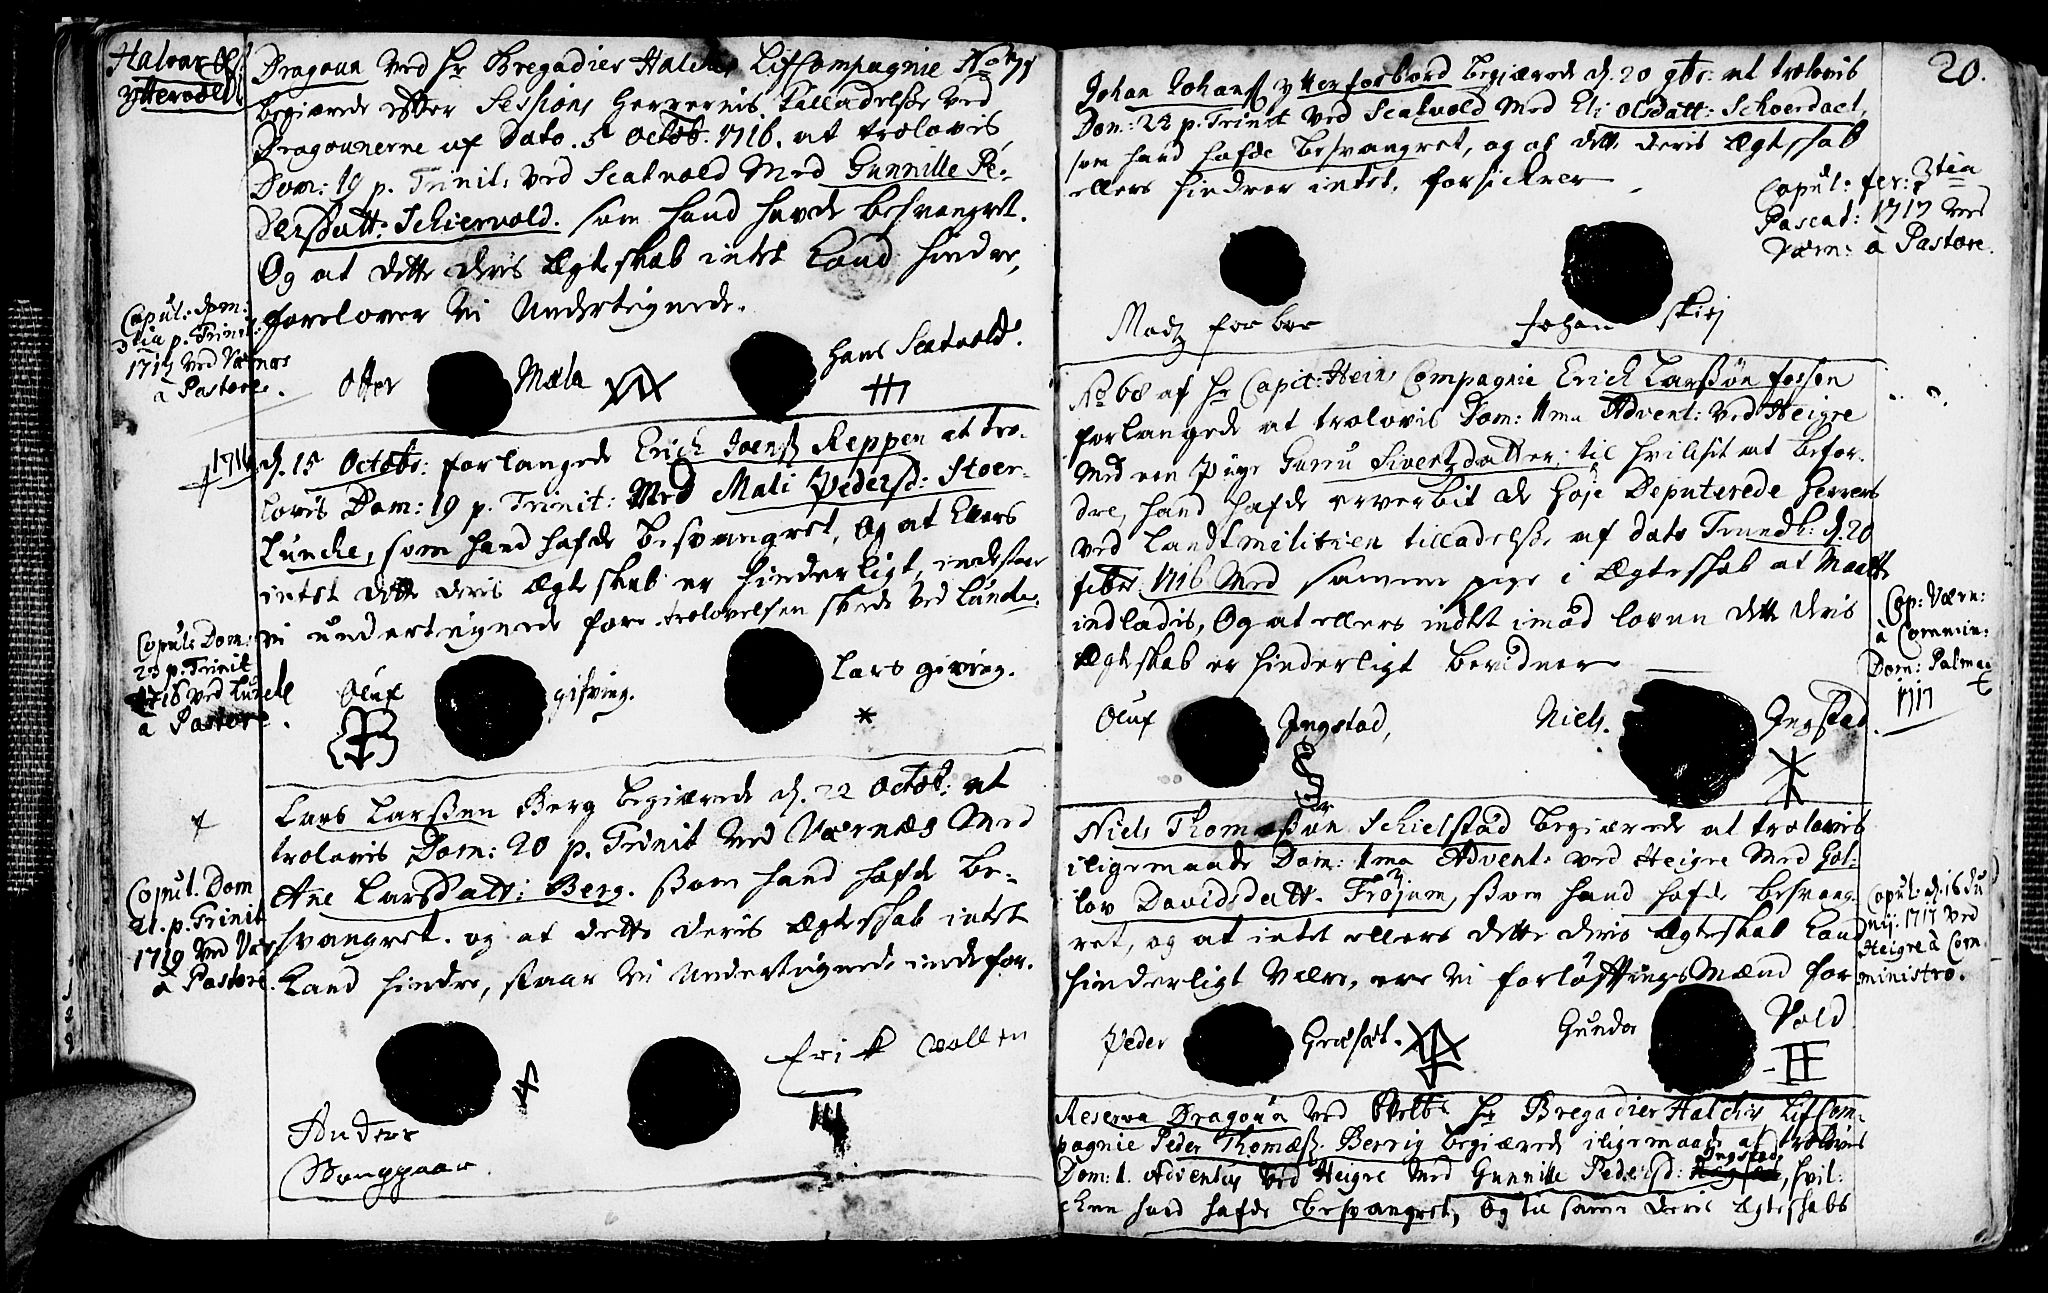 Halvor Ols:
Ytteraale
Dragoun ved Hr Bregadier Halchis LifCompagnie No 75
begiærede efter Sessions Herrernis Tilladelse ved
Dragounerne af Dato 5 Octob. 1716. at trolovis
Dom: 19 p. Trinit: ved Scatvold Med Gunnille Pe-
dersdatt: Schiervold. som hand havde besvangret.
Og at dette deris Ægteskab intet Kand hindre,
forelover Vi Undertegnede.
Copul: Dom:
3tia p. Trinit:
1717 ved Værnæs
à Pastore.
Otter Mæla
Hans Scatvold.
1716
d. 15 Octobr: forlangede Erich Joenß Reppen at tro-
lovis Dom: 19 p. Trinit: Med Mali Pedersd: Stoer-
Lunche, som hand hafde besvangret, Og at Ellers
intet dette deris Ægteskab er hinderligt, indestaar
vi undertegnede fore. trolovelsen skede ved Lunche.
Copul: Dom:
23 p. Trinit
1716 ved Lunche
à Pastore.
Oluf gisving.
Lars giving.
Lars Larßen Berg begiærede d. 22 Octob: at
trolovis Dom: 20 p. Trinit ved Værnæs Med
Ane Larsdatt: Berg. som hand hafde be-
svangret. og at dette deris Ægteskab intet
Kand hindre, staar Vi Undertegnede inde for.
Copul. Dom
21. p. Trinit
1719 ved Vær
à Pastore.
Erik Vollen
Anders
20.
Johan Johanß ytterforbord begiærede d. 20 9br: at trolovis
Dom: 22 p. Trinit ved Scatvold Med Eli Olsdatt: Schoerdael,
som hand hafde besvangret, og at dette deris Ægteskab
ellers hindrer intet, forsickrer
Copul: fer: 3tia
Pascat: 1717 ved
Værn: à Pastore.
Madz forbor
Johan Skiej
No 68 af Hr Capit: Heins Compagnie Erich Larßøn fossen
forlangede at trolovis Dom: 1ma Advent: ved Heigre
Med een Pige Guru Sivertzdatter; til hvilchet at befor-
dre, hand hafde erverbit de Høje Deputerede Herrers
ved Landtmilitien tilladelse af dato Trundh: d. 20
febr. 1716 Med samme pige i Ægteskab at Maatte
indladis, Og at ellers indtet imod loven dette deris
Ægteskab er hinderligt bevidner
Cop: Værn:
à Commin:
Dom: Palmar
1717
Oluf Jngstad,
Niels. Jngstad.
Niels Thomaßøn Schielstad begiærede at trolovis
iligemaade Dom: 1ma Advent: ved Heigre Med Gol-
lov Davidsdatt. Frøjum, som hand hafde besvang-
ret, og at intet ellers dette deris Ægteskab Kand
hinderligt Være, ere Vi forløftningsMænd for
Copul: d. 16 Ju
nij. 1717 ved
Heigre à Com
ministro.
Peder Græsæt.
Gunder Vold
Reserva Dragoun ved Velb: Hr Bregadier Halchis LifCom-
pagnie Peder Thomæß. Berrig begiærede iligemaade at trolovis
Dom: 1. Adventus ved Heigre Med Gunnille Pedersd: Jngstad, hvil-
chen hand hafde besvangret, Og til samme deris Ægteskabs